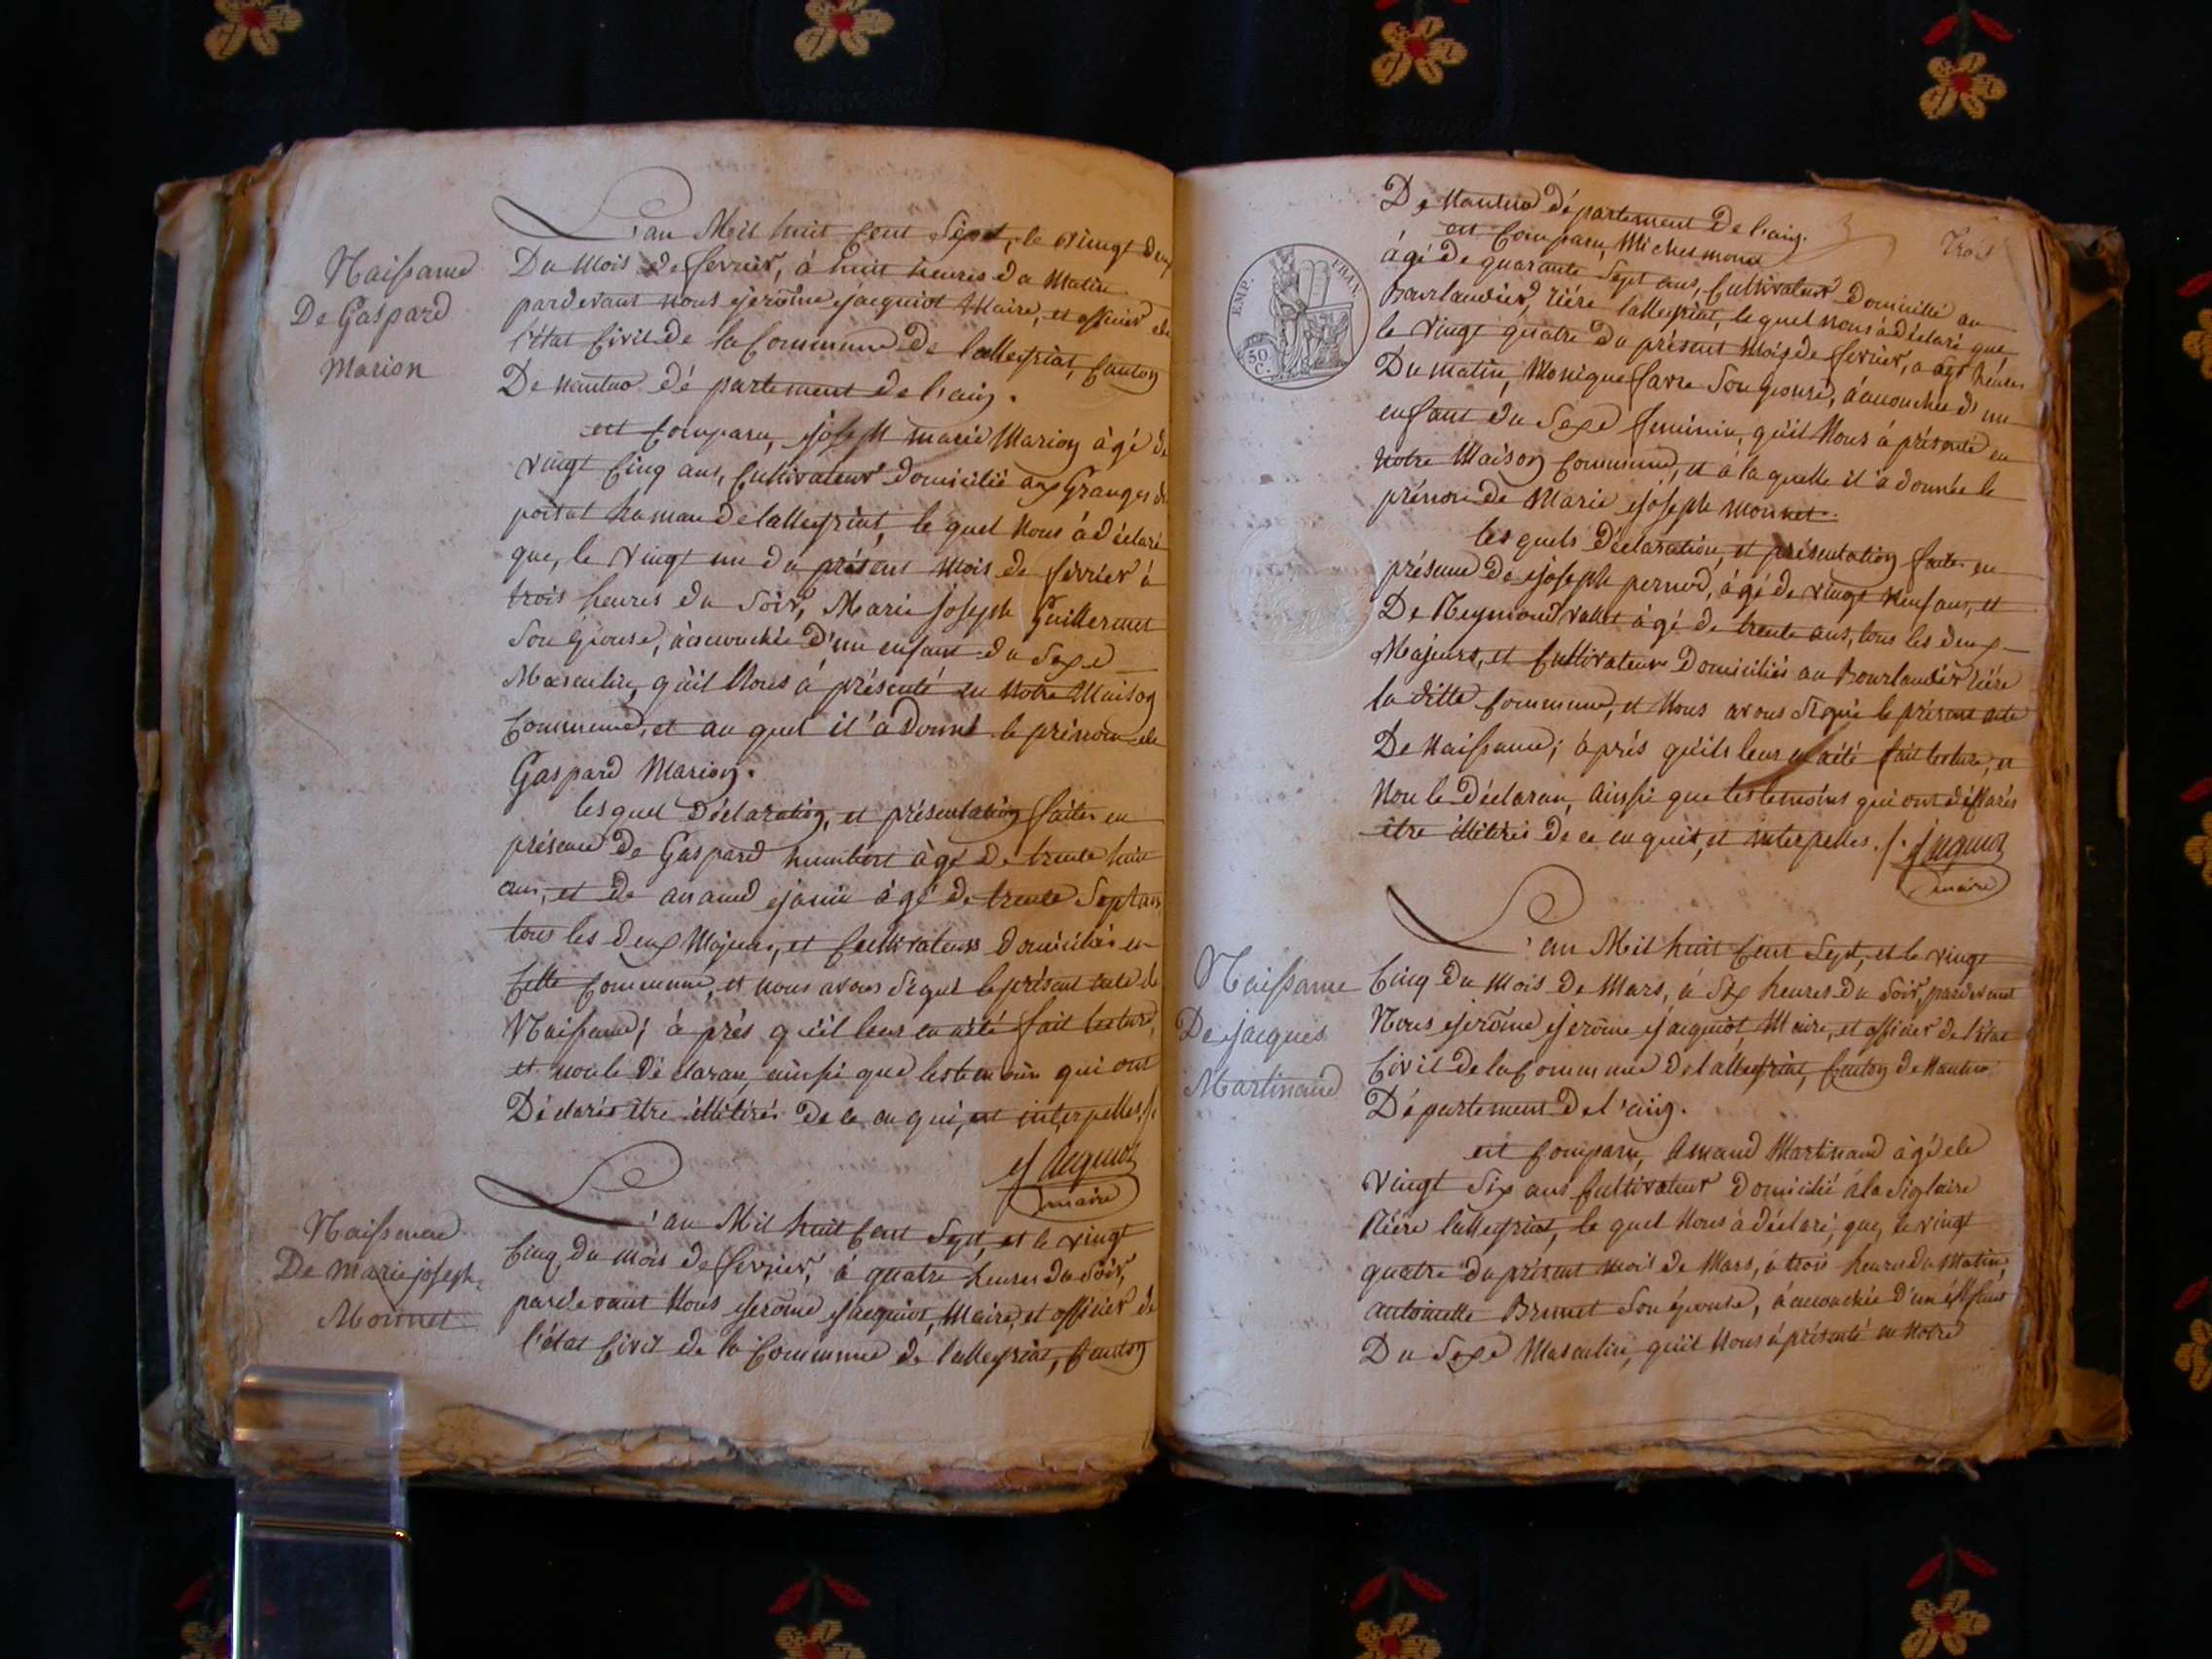 Naissance
De Gaspard
Marion
L'an Mil huit Cent Sept, le vingt deux
Du Mois de fevrier, à huit heures du Matin
pardevant nous jerôme jacquiot Maire, et officier de
l'état Civil de la Commune de lalleyriat, Canton
De nantua département de l'ain.
est Comparu, joseph marie Marion àgé de
vingt Cinq ans, Cultivateur Domicilié aux Granges du
hamau de lalleyriat, le quel Nous à déclaré
que, le vingt un du présent Mois de février à
trois heures du Soir, Marie joseph Guillermet
Son épouse, à accouchée d'un enfant du Sexe
Masculin, qu'il Nous à présenté en Notre Maison
Commune, et au quel il à Donné le prénom de
Gaspard Marion.
les quel Déclaration, et présentation faites en
présence de Gaspard humbert àgé de trente huit
ans, et de àgé de trente Sept ans
tous les deux Majeurs, et Cultivateurs domiciliés en
Cette Commune, et nous avons Signé le présent acte de
Naissance; à près qu'il leur en àété fait lecture,
et non le Déclaran, ainsi que les temoin qui ont
Déclarés être illitérés de ce en qui, et interpelles./.
jacquiot
maire
Naissance
De marie joseph
Monnet
L'an Mil huit Cent Sept, et le vingt
Cinq du mois de fevrier, à quatre heures du Soir,
pardevant Nous jerôme jacquiot, Maire, et officier de
l'état Civil de la Commune de lalleyriat, Canton
Trois
3
De Nantua département De l'ain.
est Comparu, Michel monet
àgé de quarante Sept ans, Cultivateur Domicilié au
Bourlandier, riére lalleyriat, le quel nous à déclaré que,
le vingt quatre du présent Mois de fevrier, a Sept heures
Du matin, Monique favre Son épouse, à accouchée d'un
enfant du Sexe feminin, qu'il Nous à présenté en
Notre Maison Commune, et à la quelle il à donnée le
prénom de Marie joseph Monnet.
EMP. FRAN.
50 C.
les quels Déclaration, et présentation faites en
présence de joseph pernod, àgé de vingt Neuf ans, et
De Reymond vallet àgé de trente ans, tous les deux
Majeurs, et Cultivateur Domiciliés au Bourlandier riére
la ditte Commune, et Nous avons Signé le présent acte
De Naissance; à prés qu'ils leur en àété fait lecture, et
Non le Déclaran, ainssi que les temoins qui ont déclarés
être illitérés de ce en quis, et interpelles./. jacquiot
maire
Naissance
De jacques
Martinand
L'an Mil huit Cent Sept, et le vingt
Cinq du Mois de Mars, à Six heures du Soir, pardevant
Nous jerôme jerôme jacquiot, Maire, et officier de l'état
Civil de la Commune de lalleyriat, Canton de Nantua
Département De l'ain.
est Comparu, Amand Martinand àgé de
Vingt Six ans Cultivateur Domicilié à la Siglaire
Riére lalleyriat, le quel Nous à déclaré, que, le vingt
quatre du présent mois de Mars, à trois heures du Matin,
antoinette Brunet Son épouse, à accouchée d'un enfant
Du Sexe Masculin, qu'il Nous à présenté en Notre